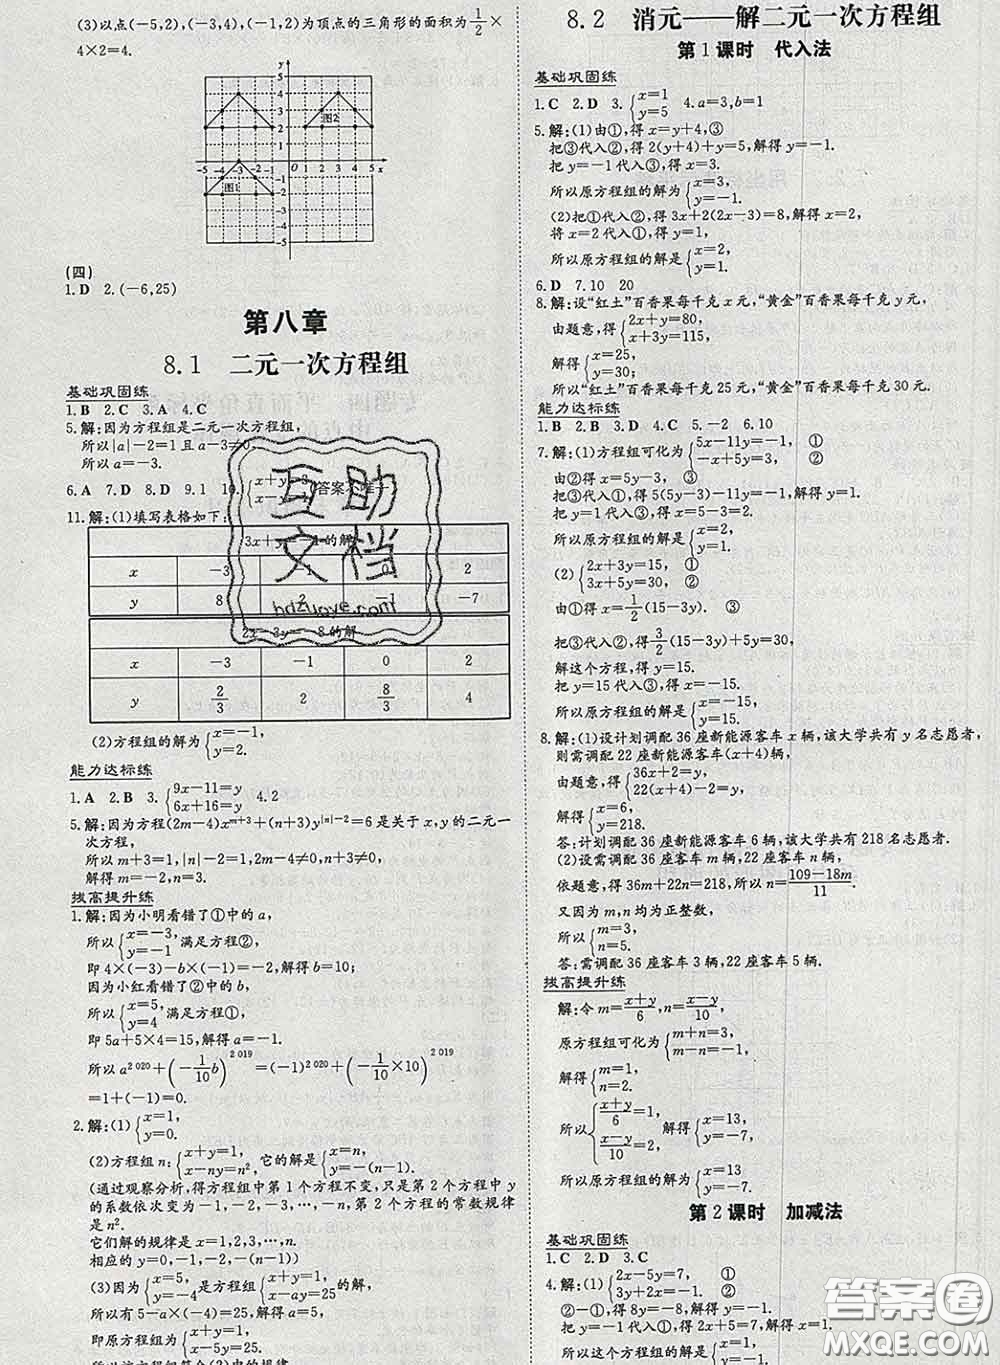 (3)以点(-5,2),(-3,4),(-1,2)为顶点的三角形的面积为1/2×
4×2=4.
图1
图2
(四)
1.D 2.(-6,25)
第八章
8.1 二元一次方程组
基础巩固练
1.B 2.C 3.A 4.C
5.解:因为方程组是二元一次方程组,
所以|a|-2=1且a-3≠0,
所以a=-3.
6.A 7.D 8.D 9.1 10.
(答案不唯一)
11.解:(1)填写表格如下:
3x+y=-1的解
x -3 -1 0 2
y 8 2 -1 -7
2x-3y=-8的解
x -3 -1 0 2
y 2/3 2 8/3 4
(2)方程组的解为{x=-1, y=2.
能力达标练
1.A 2.B 3.{9x-11=y 6x+16=y 4.2
5.解:因为方程(2m-4)x^{m+3}+(n+3)y^{|n|-2}=6是关于x,y的二元一
次方程,
所以m+3=1,|n|-2=1,2m-4≠0,n+3≠0,
解得m=-2,n=3.
拔高提升练
1.解:因为小明看错了①中的a,
所以{x=-3, y=-1满足方程②,
即4×(-3)-b×(-1)=-2,解得b=10.
因为小红看错了②中的b,
所以{x=5, y=4满足方程①,
即5a+5×4=15,解得a=-1.
所以a^{2020}+(-1/10 b)^{2019}=(-1)^{2020}+(-1/10×10)^{2019}
=1+(-1)=0.
2.解:(1){x=1, y=0.
(2)方程组n:{x+y=1, x-ny=n²,它的解是{x=n, y=-(n-1).
(通过观察分析,得方程组中第1个方程不变,只是第2个方程中y
的系数依次变为-1,-2,-3,…,-n,第2个方程的常数规律
是n².
它们解的规律是x=1,2,3,…,n,
相应的y=0,-1,-2,…,-(n-1))
(3)因为{x=5, y=-4是方程组{x+y=1, x-ay=25的解,
所以有5-a×(-4)=25,解得a=5,
即原方程组为{x+y=1, x-5y=25,
8.2 消元——解二元一次方程组
第1课时 代入法
基础巩固练
1.C 2.D 3.{x=1 y=5 4.a=3,b=1
5.解:(1)由①,得x=y+4,③
把③代入②,得2(y+4)+y=5,解得y=-1.
把y=-1代入③,得x=3.
所以原方程组的解为{x=3, y=-1.
(2)把①代入②,得3x+2(2x-3)=8,解得x=2,
将x=2代入①,得y=1,
所以原方程组的解是{x=2, y=1.
6.D 7.10 20
8.解:设“红土”百香果每千克x元,“黄金”百香果每千克y元,
由题意,得{2x+y=80, x+3y=115,
解得{x=25, y=30;
所以“红土”百香果每千克25元,“黄金”百香果每千克30元.
能力达标练
1.B 2.B 3.D 4.C 5.-2 6.10
7.解:(1)方程组可化为{5x-11y=-1, ① -x+5y=3, ②
由②,得x=5y-3, ③
把③代入①,得5(5y-3)-11y=-1,解得y=1.
把y=1代入③,得x=5-3=2.
所以原方程组的解是{x=2, y=1.
(2){2x+3y=15, ① 3x+5y=30. ②
由①得x=1/2(15-3y). ③
把③代入②,得3/2(15-3y)+5y=30,
解这个方程,得y=15.
把y=15代入③,得x=-15.
所以原方程组的解是{x=-15, y=15.
8.解:(1)设计划调配36座新能源客车x辆,该大学共有y名志愿者,
则需调配22座新能源客车(x+4)辆,
由题意,得{36x+2=y, 22(x+4)-2=y,
解得{x=6, y=218.
答:计划调配36座新能源客车6辆,该大学共有218名志愿者.
(2)设需调配36座客车m辆,22座客车n辆,
依题意,得36m+22n=218,所以n=(109-18m)/11.
又因为m,n均为正整数,
所以{m=3, n=5.
答:需调配36座客车3辆,22座客车5辆.
拔高提升练
解:令m=(x+y)/6,n=(x-y)/10,
原方程组可化为{m+n=3, m-n=-1,
解得{m=1, n=2.
所以{(x+y)/6=1, (x-y)/10=2. 解得{x=13, y=-7,
所以原方程组的解是{x=13, y=-7.
第2课时 加减法
基础巩固练
1.C 2.D 3.C
4.解:(1){2x-5y=7, ① 3y+2x=-1. ②
②-①,得8y=-8,解得y=-1,
把y=-1代入①,得2x+5=7,解得x=1.
互助文档
hdzuoye.com
答案圈
MXQE.COM